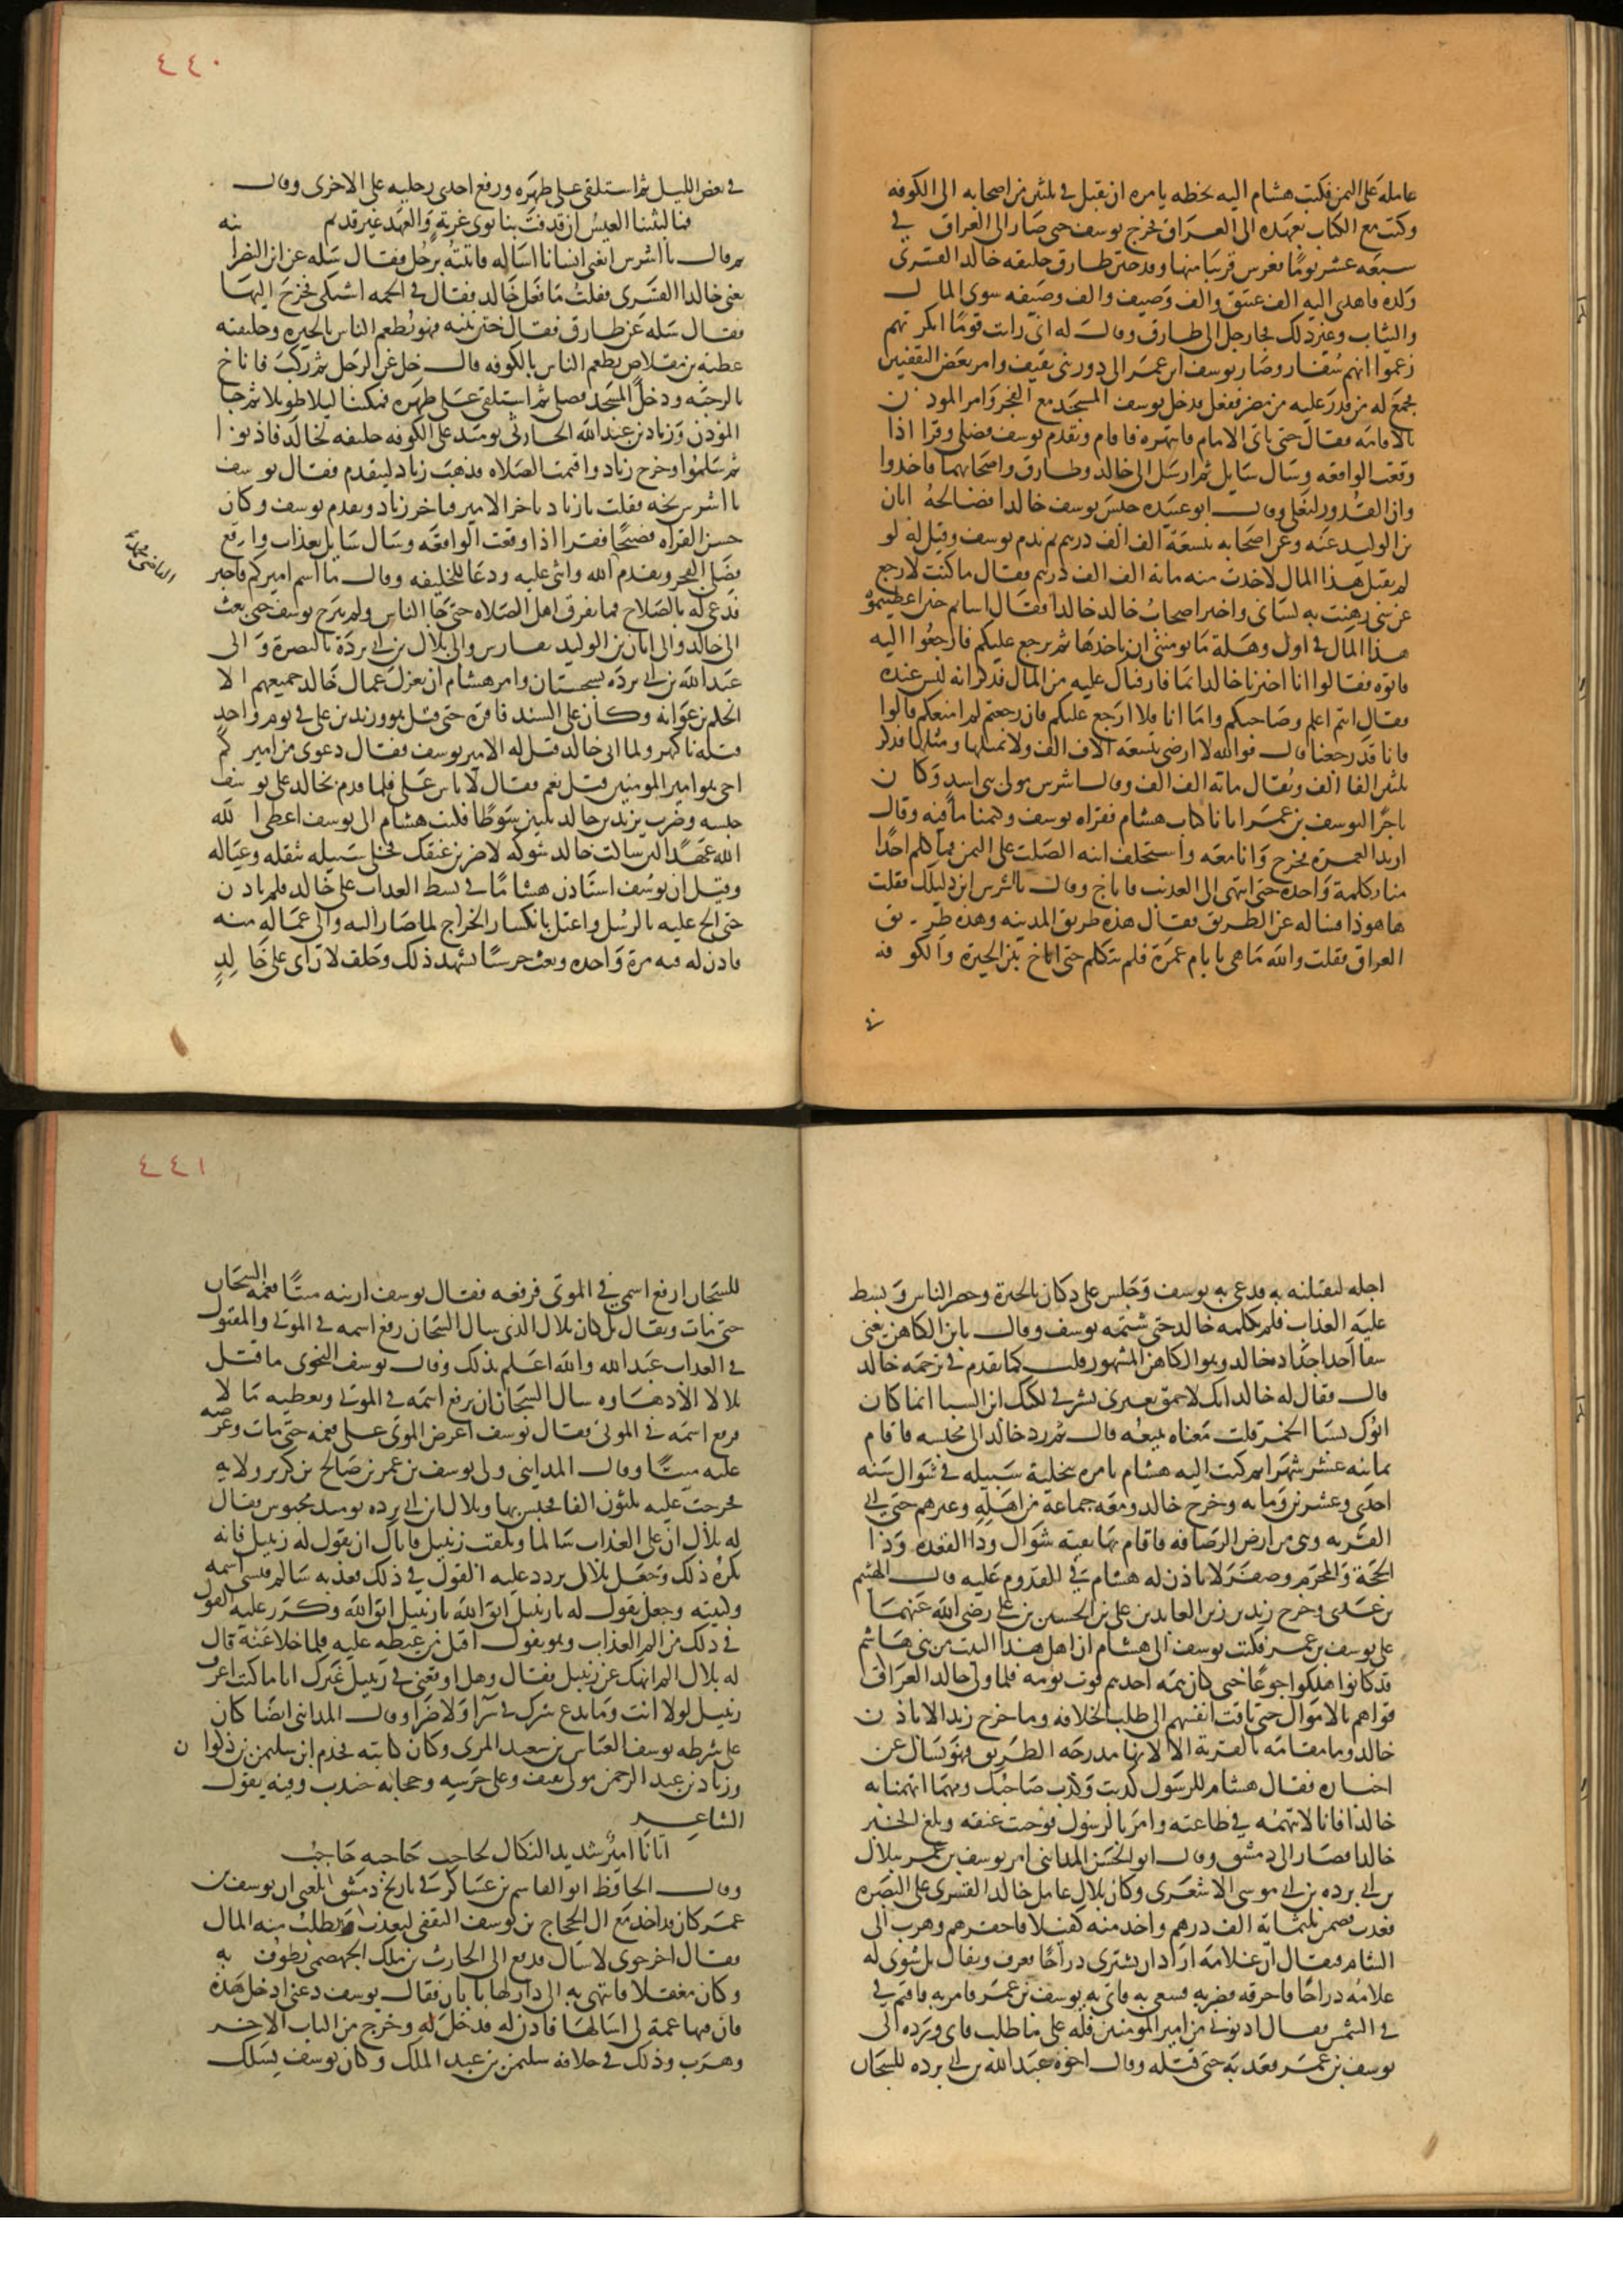 عامله على اليمن فكتب هشام اليه بخطه يامره ان يقبل في ثلثين من اصحابه الى الكوفه
وكتب مع الكتاب بعهده الى العراق فخرج يوسف حتى صار الى العراق في
سبعه عشر يوما فعرس قريبا منها وقد ختن طارق خليفه خالد القسرى
ولده فاهدى اليه الف عتيق والف وصيف والف وصيفه سوى المال
والثياب وغير ذلك فجا رجل الى طارق وقال له اني رايت قوما انكرتهم
زعموا انهم سفار وصار يوسف ابن عمر الى دور بني ثقيف وامر بعض الثقفيين
فجمع له من قدر عليه من مضر ففعل فدخل يوسف المسجد مع الفجر وامر الموذن
بالاقامه فقال حتى ياتى الامام فانتهره فاقام وتقدم يوسف فصلى وقرا اذا
وقعت الواقعه وسال سايل ثم ارسل الى خالد وطارق واصحابهما فاخذوا
وان القدور لتغلى وقال ابو عبيده حبس يوسف خالدا فصالحه ابان
بن الوليد عنه وعن اصحابه بتسعة الف الف درهم ثم ندم يوسف وقيل له لو
لم يقبل هذا المال لاخذت منه مائة الف الف درهم فقال ما كنت لارجع
عن شى رهنت به لسانى واخبر اصحاب خالد خالدا فقال اساتم حين اعطيتموه
هذا المال في اول وهلة ما يومننى ان ياخذها ثم يرجع عليكم فارجعوا اليه
فاتوه فقالوا انا اخبرنا خالدا بما فارقناك عليه من المال فذكر انه ليس عنده
فقال انتم اعلم وصاحبكم واما انا فلا ارجع عليكم فان رجعتم لم امنعكم قالوا
فانا قد رجعنا قال فوالله لا ارضى بتسعه الاف الف ولا بمثلها ومثلها فذكر
ثلثين الفا الف ويقال مائه الف الف وقال اشرس مولى بنى اسد وكان
تاجرا ليوسف بن عمر اتانا كتاب هشام فقراه يوسف وكتمنا ما فيه وقال
اريد العمرة فخرج وانا معه واستخلف ابنه الصلت على اليمن فما كلم احدا
منا بكلمة واحده حتى انتهى الى العذيب فاناخ وقال يا اشرس اين دليلك فقلت
ها هوذا فساله عن الطريق فقال هذه طريق المدينه وهذه طريق
العراق فقلت والله ما هى بايام عمرة فلم يتكلم حتى اناخ بين الحيرة والكوفه
في
٤٤٠
في بعض الليل ثم استلقى على ظهره ورفع احدى رجليه على الاخرى وقال
فما لبثتنا العيس ان قذفت بنا نوى غربة والعهد غير قديم
ثم قال يا اشرس ابغى انسانا اساله فاتيته برجل فقال سله عن ابن النصرانيه
يعنى خالدا القسرى فقلت ما فعل خالد فقال في الحمه اشتكى فخرج اليها
فقال سله عن طارق فقال ختن بنيه فهو يطعم الناس بالحيره وخليفته
عطيه بن مقلاص يطعم الناس بالكوفه قال خل عن الرجل ثم ركب فاناخ
بالرحبه ودخل المسجد فصلى ثم استلقى على ظهره فمكثنا ليلا طويلا ثم جا
المؤذن وزياد بن عبد الله الحارثى يومئذ على الكوفه خليفه لخالد فاذنوا
ثم سلموا وخرج زياد واقيمت الصلاه فذهب زياد ليتقدم فقال يوسف
يا اشرس نحه فقلت يا زياد تاخر الامير فتاخر زياد وتقدم يوسف وكان
حسن القراه فصيحا فقرا اذا وقعت الواقعه وسال سايل بعذاب واقع
فصلى الفجر وتقدم القاضى فحمد الله واثنى عليه ودعا للخليفه وقال ما اسم اميركم فاخبر
فدعى له بالصلاح فما تفرق اهل الصلاه حتى جا الناس ولم يبرح يوسف حتى بعث
الى خالد والى ابان بن الوليد بفارس والى بلال بن ابى بردة بالبصرة والى
عبد الله بن ابى بردة بسجستان وامر هشام ان يعزل عمال خالد جميعهم الا
الحكم بن عوانه وكان على السند فاقره حتى قتل هو وزيد بن على في يوم واحد
قتله ناكهر ولما اتى خالد قيل له الامير يوسف فقال دعونى من اميركم
احى هو امير المومنين فقيل نعم فقال لا باس على فلما قدم بخالد على يوسف
حبسه وضرب يزيد بن خالد ثلثين سوطا فكتب هشام الى يوسف اعطى الله
الله عهدا لئن شاكت خالد شوكه لاضربن عنقك فخلى سبيله بثقله وعياله
وقيل ان يوسف استاذن هشاما في بسط العذاب على خالد فلم ياذن
حتى الح عليه بالرسل واعتل بانكسار الخراج لما صار اليه والى عماله منه
فاذن له فيه مرة واحده وبعث حرسيا يشهد ذلك وحلف لان اتى على خالد
اجله ليقتلنه به فدعى به يوسف وجلس على دكان بالحيرة وحضر الناس وبسط
عليه العذاب فلم يكلمه خالد حتى شتمه يوسف وقال يا ابن الكاهن يعنى
شقا احد اجداد خالد وهو الكاهن المشهور قلت كما تقدم في ترجمه خالد
قال فقال له خالد انك لاحمق تعيرنى بشرفى لكنك ابن السبا انما كان
ابوك يسبا الخمر قلت معناه يبيعه قال ثم رد خالد الى محبسه فاقام
ثمانيه عشر شهرا ثم كتب اليه هشام يامره بتخلية سبيله في شوال سنه
احدى وعشرين ومايه وخرج خالد ومعه جماعة من اهله وغيرهم حتى اتى
القريه وهى من ارض الرصافه فاقام بها بقيه شوال وذا القعده وذا
الحجة والمحرم وصفر لا ياذن له هشام في القدوم عليه قال الهيثم
بن عدى وخرج زيد بن زين العابدين على بن الحسين بن على رضى الله عنهما
على يوسف بن عمر فكتب يوسف الى هشام ان اهل هذا البيت من بنى هاشم
قد كانوا هلكوا جوعا حتى كان همه احدهم قوت يومه فلما ولى خالد العراق
قواهم بالاموال حتى تاقت انفسهم الى طلب الخلافه وما خرج زيد الا باذن
خالد وما مقامه بالقرية الا لانها مدرجه الطريق فهو يسال عن
اخباره فقال هشام للرسول كذبت وكذب صاحبك ومهما اتهمنا به
خالدا فانا لا نتهمه في طاعته وامر بالرسول فوجئت عنقه وبلغ الخبر
خالدا فصار الى دمشق وقال ابو الحسن المداينى امر يوسف بن عمر ببلال
بن ابى برده بن ابى موسى الاشعرى وكان بلال عامل خالد القسرى على البصره
فعذب فضمن بثلثماية الف درهم واخذ منه كفيلا فاخفرهم وهرب الى
الشام فيقال ان غلامه اراد ان يشترى دراجا فعرف ويقال بل شوى له
غلامه دراجا فاحرقه فضربه فسعى به فاتى به يوسف بن عمر فامر به فاقيم في
في الشمس فقال ادنونى من امير المومنين فله على ما طلب فابى ورده الى
يوسف بن عمر فعذبه حتى قتله وقال اخوه عبد الله بن ابى برده للسجان
٤٤١
للسجان ارفع اسمى في الموتى فرفعه فقال يوسف ارينه ميتا فغمه السجان
حتى مات ويقال بل كان بلال الذى سال السجان رفع اسمه في الموتى والمقتول
في العذاب عبد الله والله اعلم بذلك وقال يوسف النحوى ما قتل
بلالا الا دهاوه سال السجان ان يرفع اسمه في الموتى ويعطيه مالا
فرفع اسمه في الموتى فقال يوسف اعرض الموتى على فغمه حتى مات وعرضه
عليه ميتا وقال المداينى ولى يوسف بن عمر بن صالح بن كريز ولايه
فخرجت عليه ثلثون الفا فحبس بها وبلال ابن ابى برده يومئذ محبوس فقال
له بلال ان على العذاب سالما ويلقب زنبيل فاياك ان تقول له زنبيل فانه
يكره ذلك وجعل بلال يردد عليه القول في ذلك فعذبه سالم فنسى اسمه
وكنيته وجعل يقول له يا زنبيل اتق الله يا زنبيل اتق الله وكرر عليه القول
في ذلك من الم العذاب وهو يقول اقتل من غيظه عليه فلما خلا عنه قال
له بلال الم انهك عن زنبيل فقال وهل اوقعنى في زنبيل غيرك انا ما كنت اعرف
زنبيل لولا انت وما تدع شرك في سرا ولا ضرا وقال المداينى ايضا كان
على شرطه يوسف العباس بن سعيد المرى وكان كاتبه قحذم ابن سليمن بن ذكوان
وزياد بن عبد الرحمن مولى ثقيف وعلى حرسه وحجابه جندب وفيه يقول
الشاعر
اتانا امير شديد النكال لحاجب حاجبه حاجب
وقال الحافظ ابو القاسم بن عساكر في تاريخ دمشق بلغنى ان يوسف بن
عمر كان قد اخذ مع ال الحجاج بن يوسف الثقفى ليعذب ويطلب منه المال
فقال اخرجونى لاسال فدفع الى الحارث بن ملك الجهضمى يطوف به
وكان مغفلا فانتهى به الى دار لها بابان فقال يوسف دعنى ادخل هذه
فان فيها عمة لى اسالها فاذن له فدخل له وخرج من الباب الاخر
وهرب وذلك في خلافه سليمن بن عبد الملك وكان يوسف يسلك